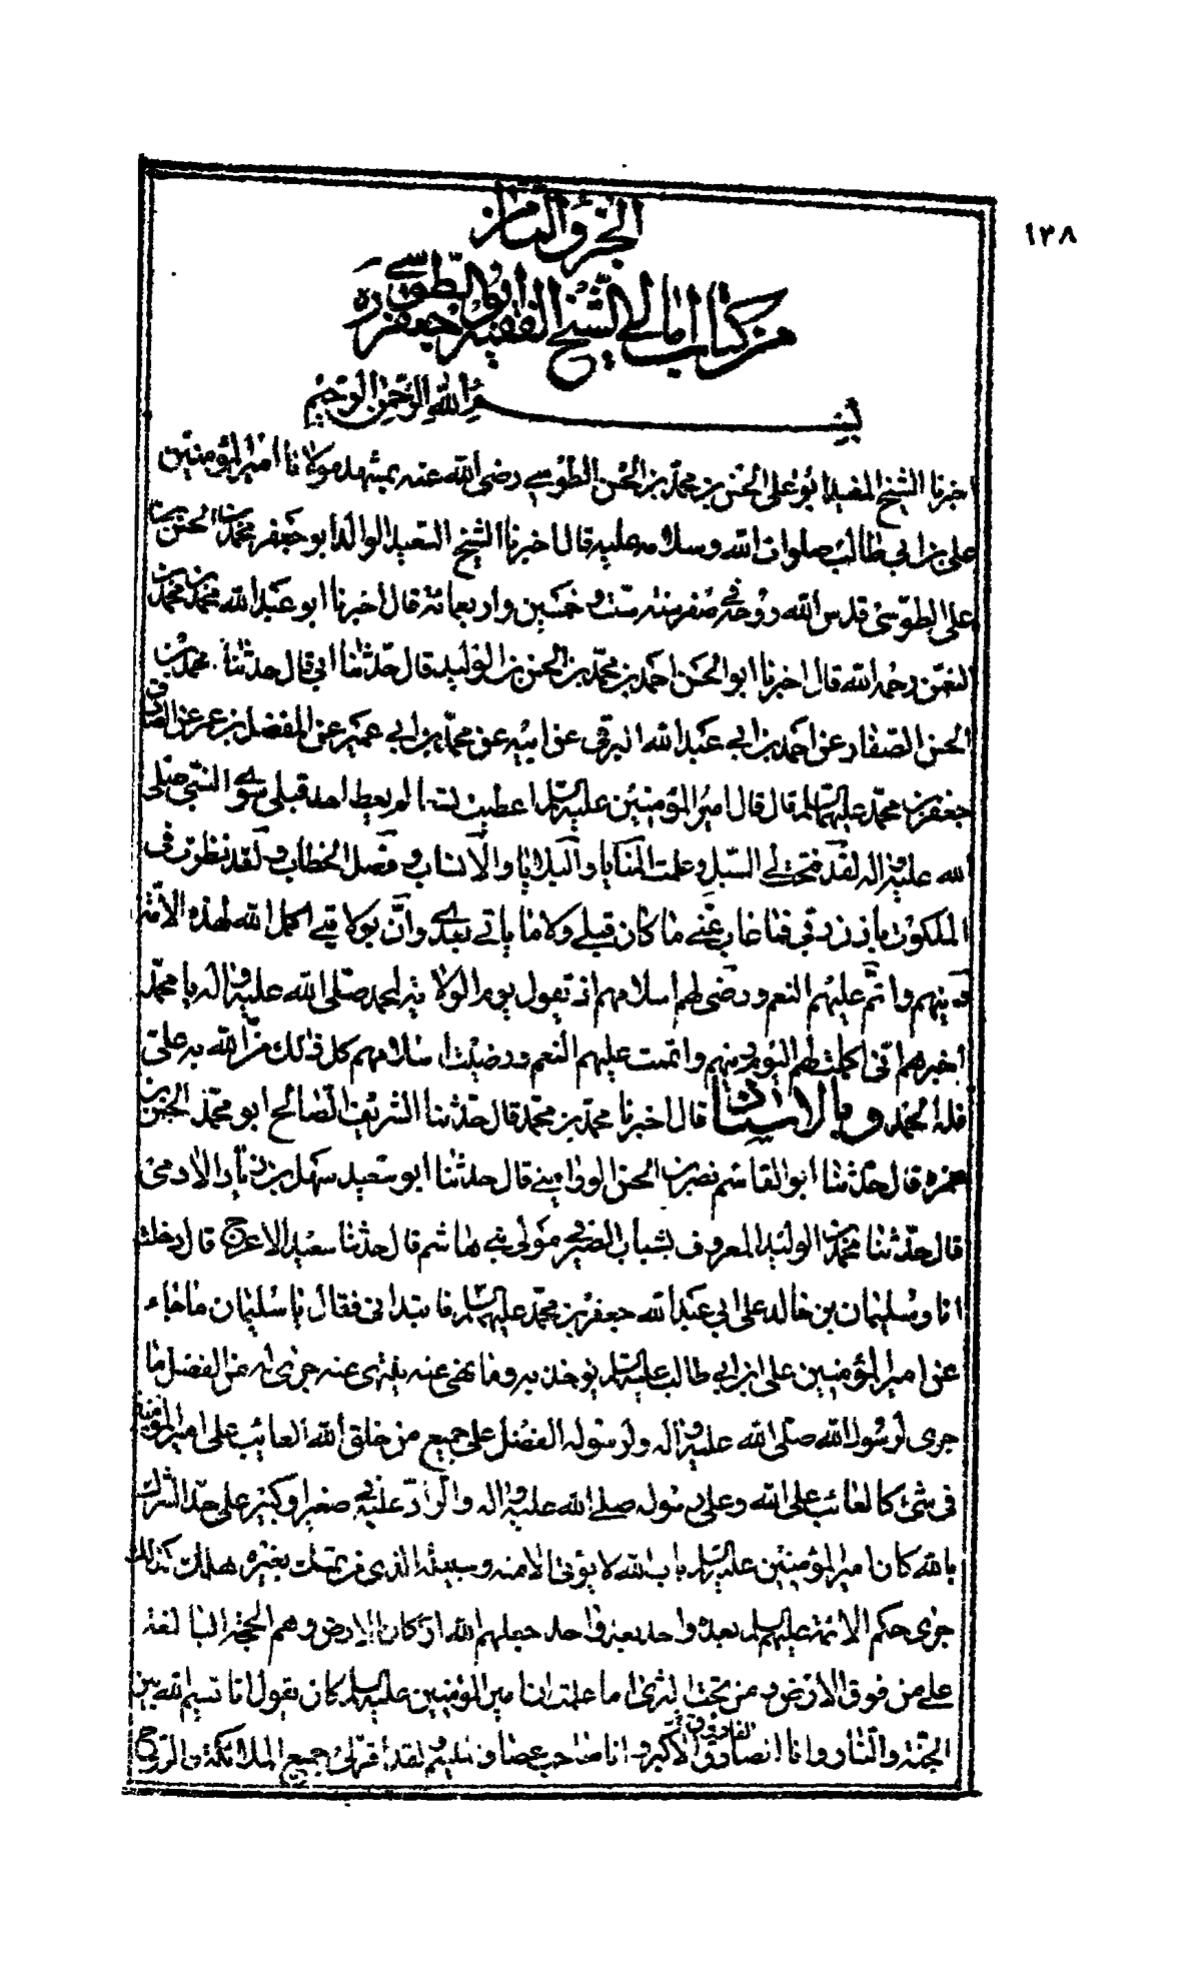 ١٣٨
الجزء الثامن
من كتاب امالي الشيخ الفقيه ابو جعفر الطوسي ره
بسم الله الرحمن الرحيم
اخبرنا الشيخ المفيد ابو علي الحسن بن محمد بن الحسن الطوسي رضي الله عنه بمشهد مولانا امير المؤمنين
علي بن ابي طالب صلوات الله وسلامه عليه قال اخبرنا الشيخ السعيد الوالد ابو جعفر محمد بن الحسن بن
علي الطوسي قدس الله روحه في صفر سنه ست و خمسين واربعمائة قال اخبرنا ابو عبد الله محمد بن محمد بن
النعمن رحمه الله قال اخبرنا ابو الحسن احمد بن محمد بن الحسن بن الوليد قال حدثنا ابي قال حدثنا محمد بن
الحسن الصفار عن احمد بن ابي عبد الله البرقي عن ابيه عن محمد بن ابي عمير عن المفضل بن عمر عن الصادق
جعفر بن محمد عليهما السلام قال قال امير المؤمنين عليه السلام اعطيت تسعا لم يعط احد قبلي سوى النبي صلى
الله عليه واله لقد فتحت لي السبل وعلمت المنايا والبلايا والانساب و فصل الخطاب و لقد نظرت في
الملكوت باذن ربي فما غاب عني ما كان قبلي ولا ما ياتي بعدي وان بولايتي اكمل الله لهذه الامة
دينهم واتم عليهم النعم ورضي لهم اسلامهم اذ يقول يوم الولاية لمحمد صلى الله عليه واله يا محمد
اخبرهم اني اكملت لهم اليوم دينهم واتممت عليهم النعم ورضيت اسلامهم كل ذلك من الله به علي
فله الحمد وبالاسناد قال اخبرنا محمد بن محمد قال حدثنا الشريف الصالح ابو محمد الحسن بن
حمزه قال حدثنا ابو القاسم نصر بن الحسن الوراميني قال حدثنا ابو سعيد سهل بن زياد الادمي
قال حدثنا محمد بن الوليد المعروف بشباب الصيرفي مولى بني هاشم قال حدثنا سعيد الاعرج قال دخلت
انا وسليمان بن خالد على ابي عبد الله جعفر بن محمد عليهما السلام فابتداني فقال يا سليمان ما جاء
عن امير المؤمنين علي ابن ابي طالب عليه السلام يوخذ به وما نهى عنه ينتهى عنه جرى له من الفضل ما
جرى لرسول الله صلى الله عليه واله ولرسوله الفضل على جميع من خلق الله العائب على امير المؤمنين
في شيء كالعائب على الله وعلى رسوله صلى الله عليه واله والراد عليه في صغير او كبير على حد الشرك
بالله كان امير المؤمنين عليه السلام باب الله لا يؤتى الا منه وسبيله الذي من تمسك بغيره هلك كذلك
جرى حكم الائمة عليهم السلام بعده واحد بعد واحد جعلهم الله اركان الارض وهم الحجة البالغة
على من فوق الارض و من تحت الثرى اما علمت ان امير المؤمنين عليه السلام كان يقول انا قسيم الله بين
الجنة والنار وانا الصادق الاكبر وانا صاحب عصا و لقد اقر لي جميع الملائكة والروح